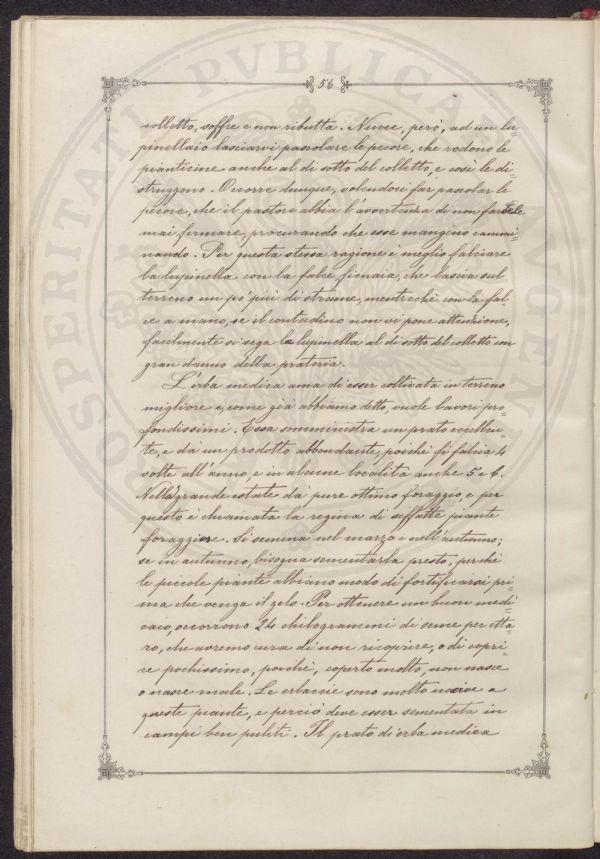 56
colletto, soffre e non ributta. Nuoce, però, ad un lu
pinellaio lasciarvi pascolare le pecore, che rodono le
pianticine anche al di sotto del colletto, e così le di=
struggono. Occorre dunque, volendoci far pascolar le
pecore, che il pastore abbia l'avvertenza di non farcele
mai fermare, procurando che esse mangino cammi=
nando. Per questa stessa ragione è meglio falciare
la lupinella con la falce fienaia, che lascia sul
terreno un pò più di strame, mentreché con la fal
ce a mano, se il contadino non vi pone attenzione,
facilmente si sega la lupinella al di sotto del colletto con
gran danno della prateria.
L'erba medica ama di esser coltivata in terreno
migliore e, come già abbiamo detto, vuole lavori pro=
fondissimi. Essa somministra un prato eccellen
te, e dà un prodotto abbondante, poiché si falcia 4
volte all'anno, e in alcune località anche 5 e 6.
Nella grande estate dà pure ottimo foraggio, e per
questo è chiamata la regina di siffatte piante
foraggiere. Si semina nel marzo e nell'autunno;
se in autunno, bisogna sementarla presto, perchè
le piccole piante abbiano modo di fortificarsi pri=
ma che venga il gelo. Per ottenere un buon medi=
caio, occorrono 24 chilogrammi di seme per etta=
ro, che avremo cura di non ricoprire, o di copri=
re pochissimo, poichè, coperto molto, non nasce
o nasce male. Le erbaccie sono molto nocive a
queste piante, e perciò deve esser sementata in
campi ben puliti. Il prato di erba medica
PROSPERITATI PVBLICAE AVGENDAE